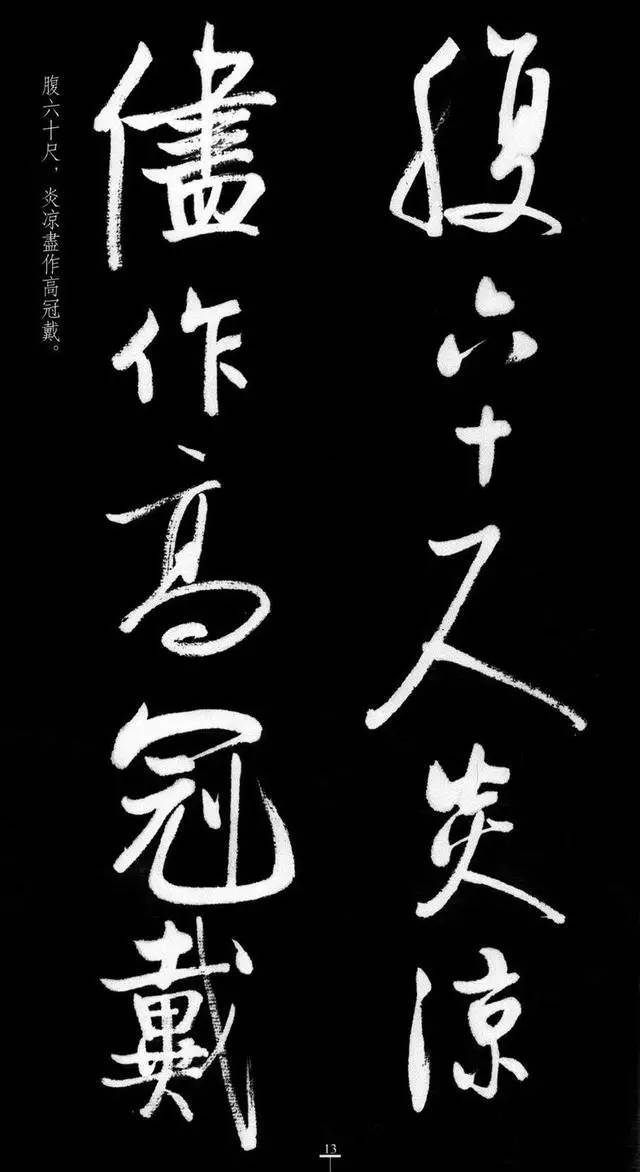 腹六十尺炎凉
儘作高冠戴
腹六十尺，炎凉盡作高冠戴。
13